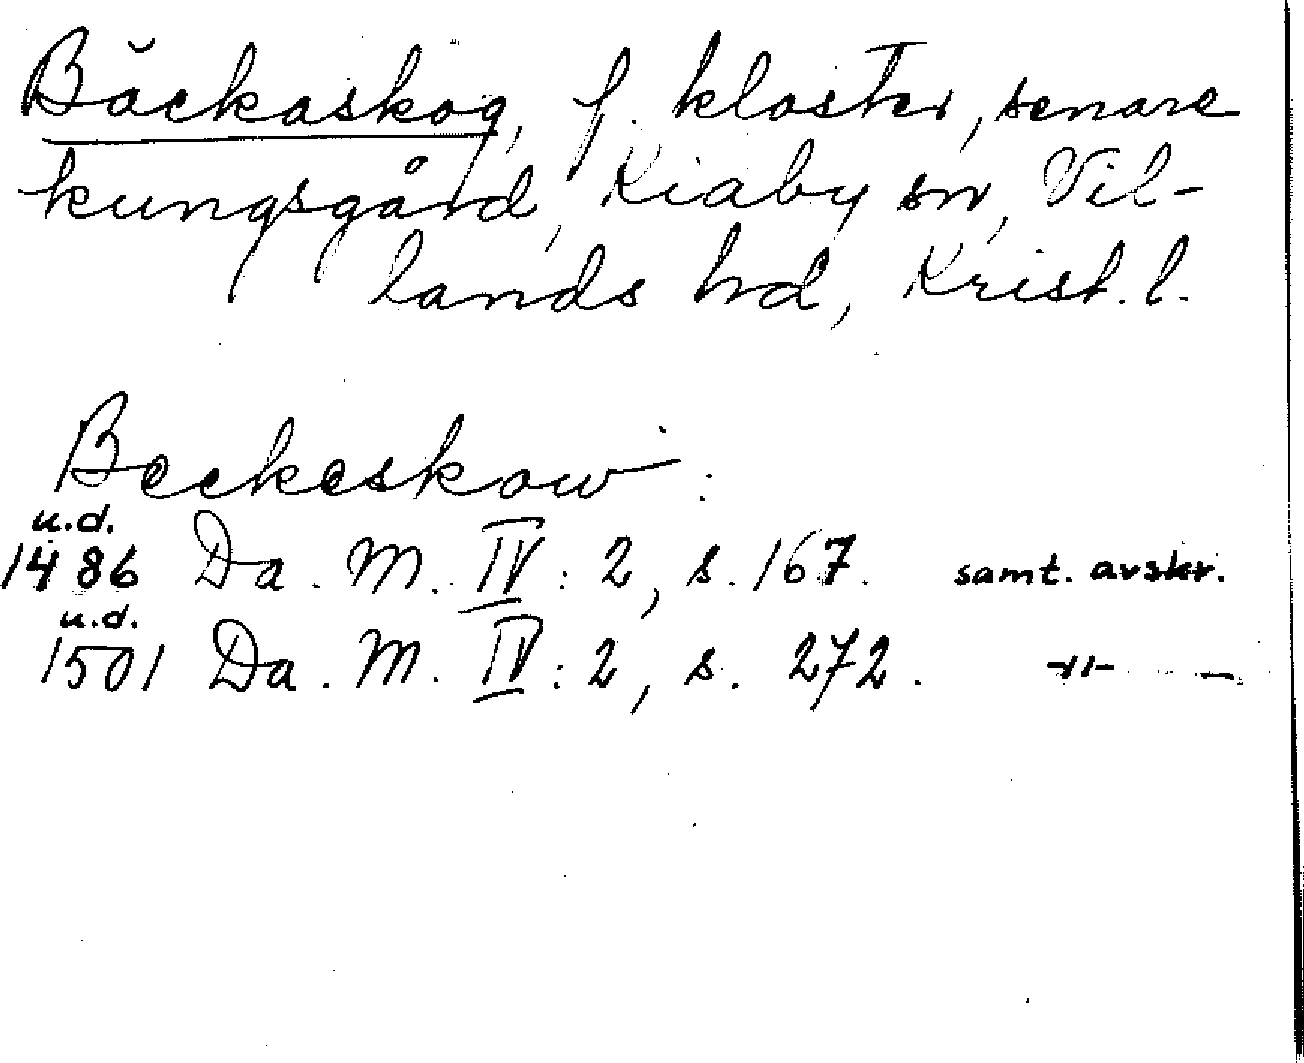 Bäckaskog, f. kloster, senare
kungsgård, Kiaby sn, Vil-
lands hd, Krist. l.
Beckeskow:
u.d.
1486 Da. M. IV: 2, s. 167. samt. avskr.
u.d.
1501 Da. M. IV: 2, s. 272. -"- -